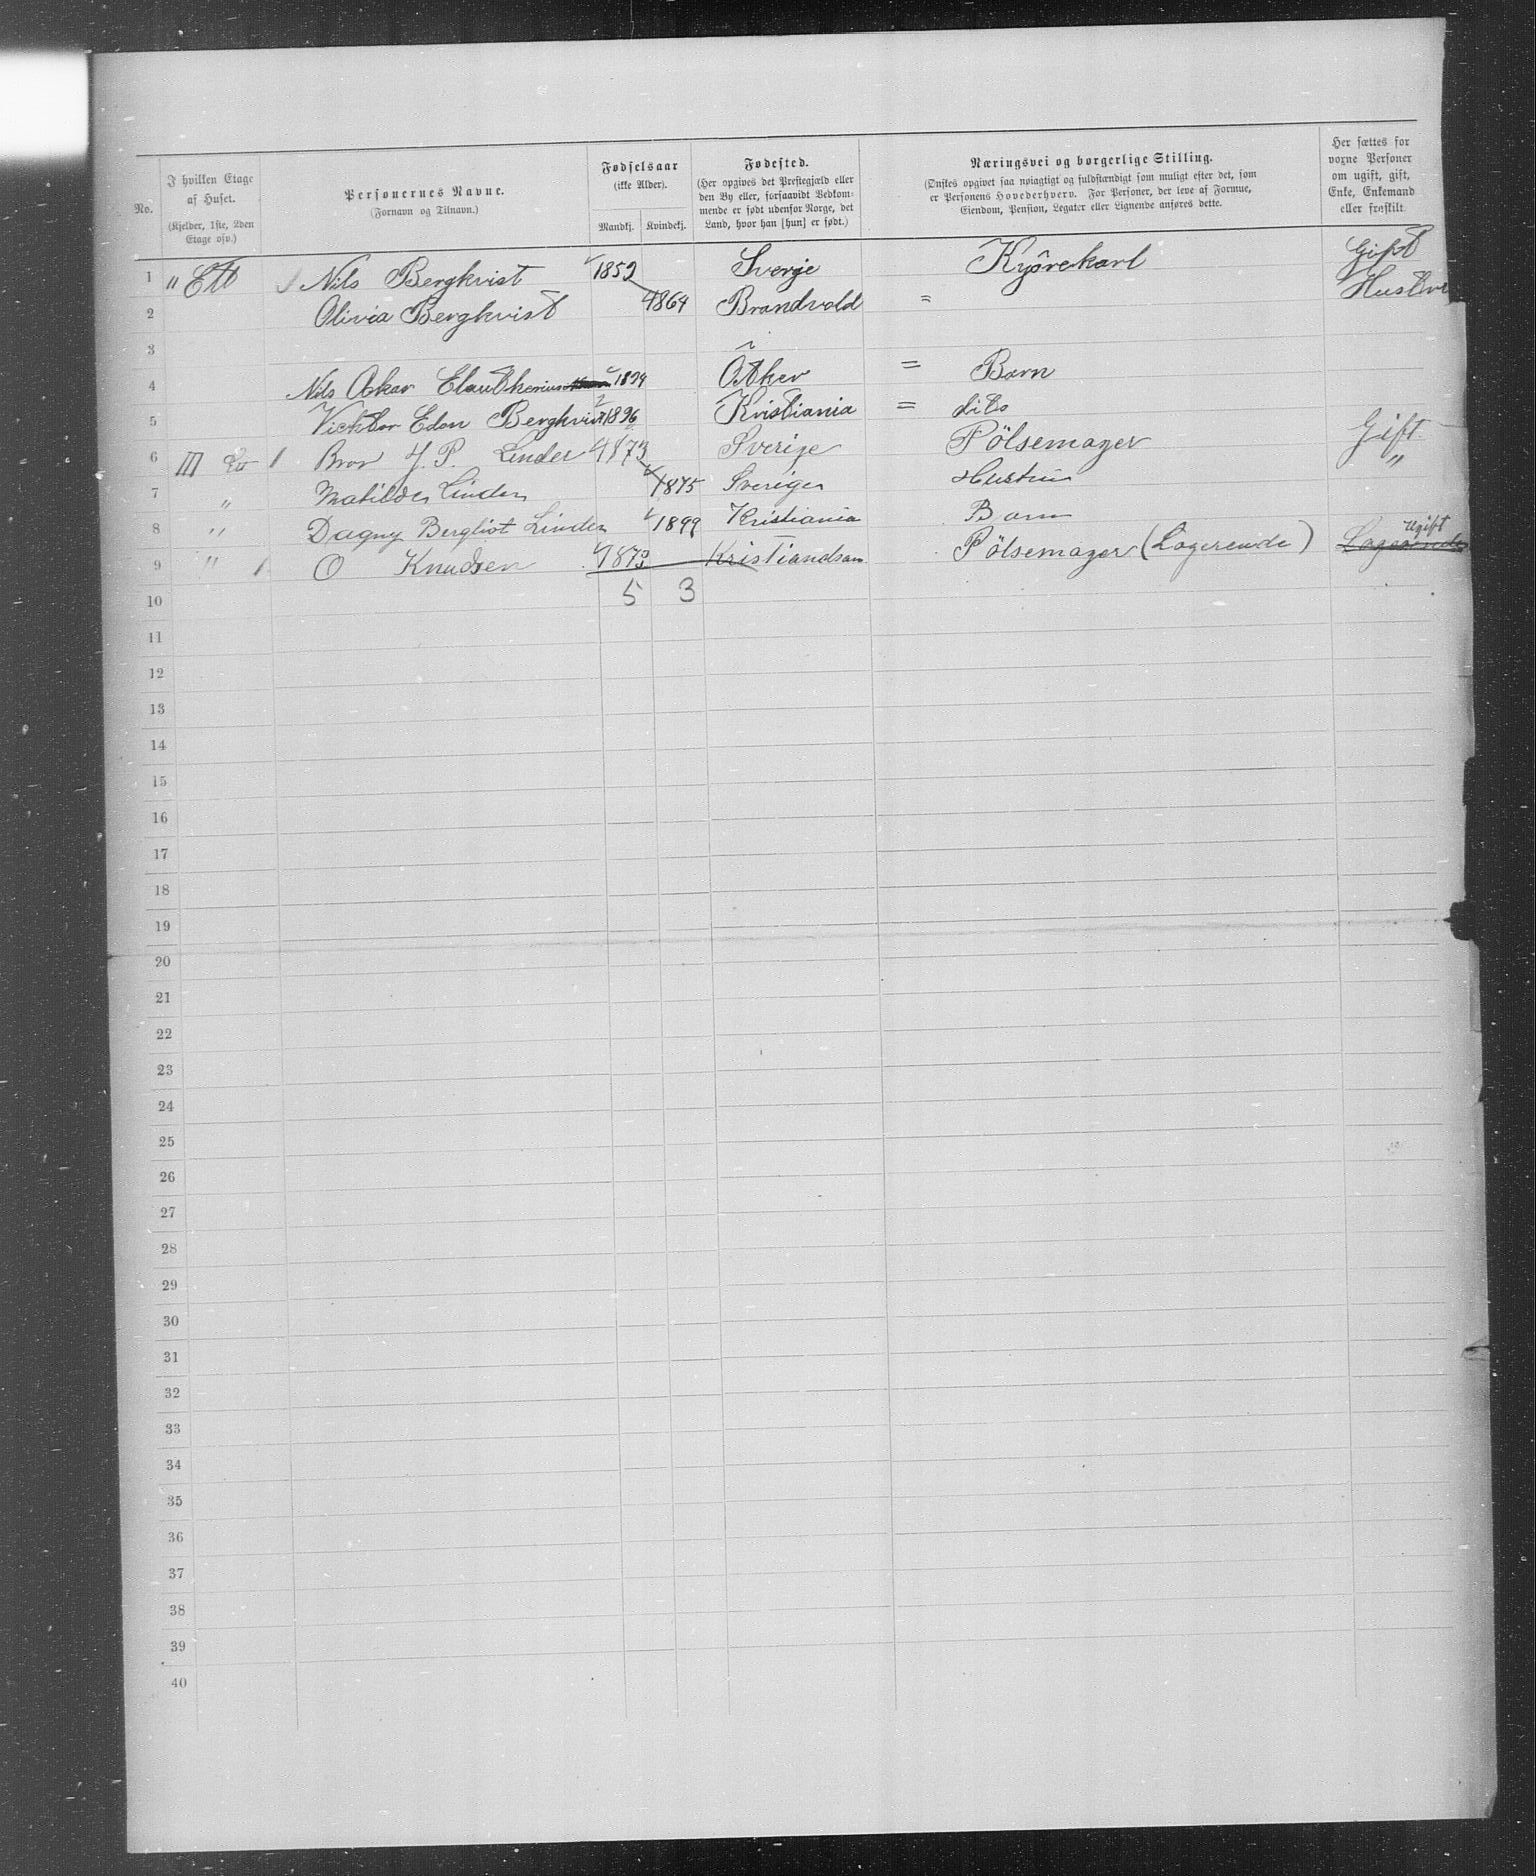 No.
I hvilken Etage af Huset.
(Kjelder, 1ste, 2den Etage osv.)
Personernes Navne.
(Fornavn og Tilnavn.)
Fødselsaar
(ikke Alder).
Mandkj. Kvindekj.
Fødested.
(Her opgives det Prestegjæld eller den By eller, forsaavidt Vedkommende er født udenfor Norge, det Land, hvor han [hun] er født.)
Næringsvei og borgerlige Stilling.
(Ønskes opgivet saa nøiagtigt og fuldstændigt som muligt efter det, som er Personens Hovederhverv. For Personer, der leve af Formue, Eiendom, Pension, Legater eller Lignende anføres dette.
Her sættes for voxne Personer om ugift, gift, Enke, Enkemand eller fraskilt.
1 " Ett Nils Bergkvist 1852 Sverje Kyörekarl Gift
2 Olivia Bergkvist 1864 Brandvold = Hustru
3
4 Nils Oskar 1894 Aker = Barn
5 Vicktor Edon Bergkvist 1896 Kristiania = dito
6 III Bror J. P. Linder 1873 Sverige Pölsemager Gift.
7 " Matilde Linder 1875 Sverige Hustru "
8 " Dagny Bergliot Linder 1899 Kristiania Barn
9 " O Knudsen 1873 Kristiandsan Pölsemager (Logerende) Ugift
10 5 3
11
12
13
14
15
16
17
18
19
20
21
22
23
24
25
26
27
28
29
30
31
32
33
34
35
36
37
38
39
40